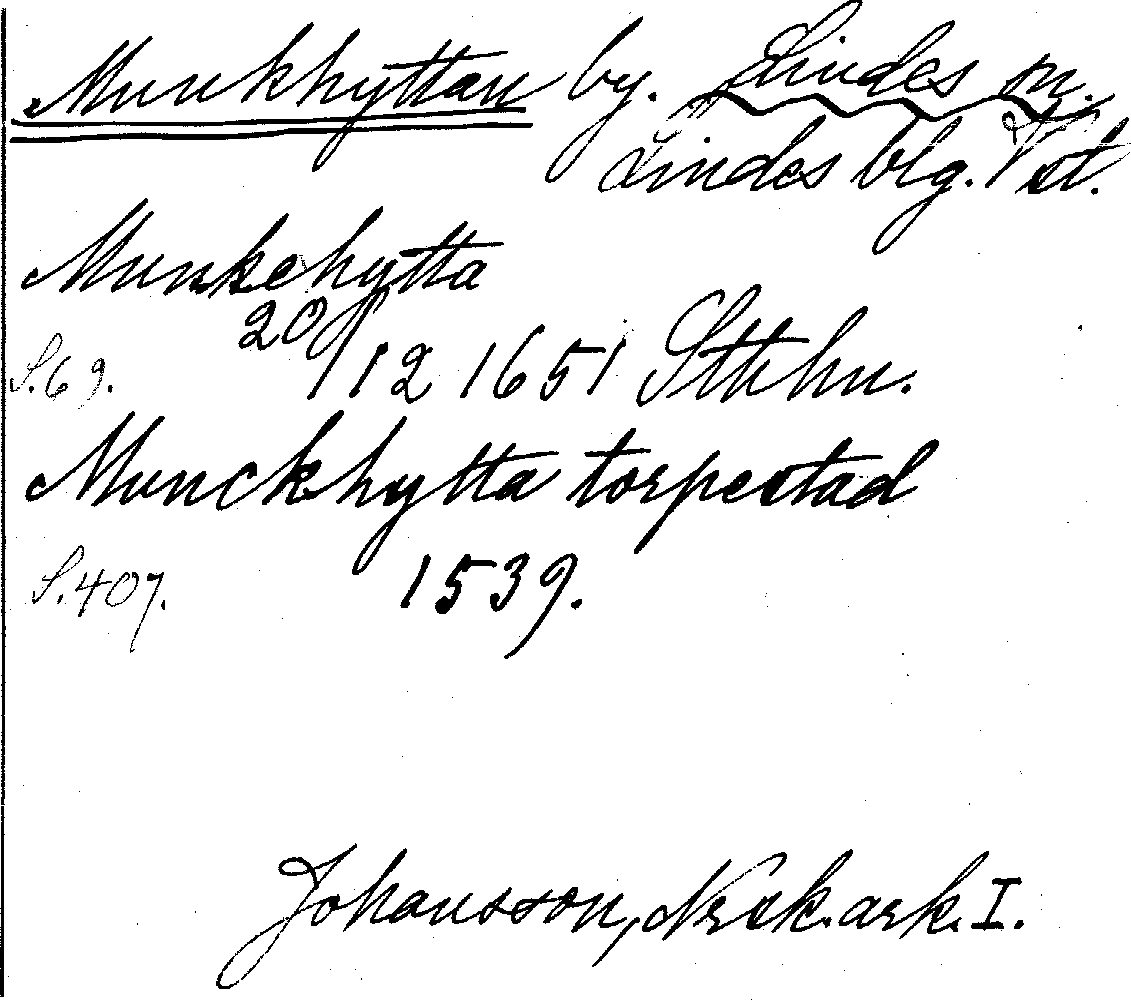 Munkhyttan by. Lindes sn.
Lindes blg. Vst.
Munkehytta
S.69. 20/12 1651 Sthlm.
Munckhytta torpestad
S.407. 1539.
Johansson, Norsk. ark. I.